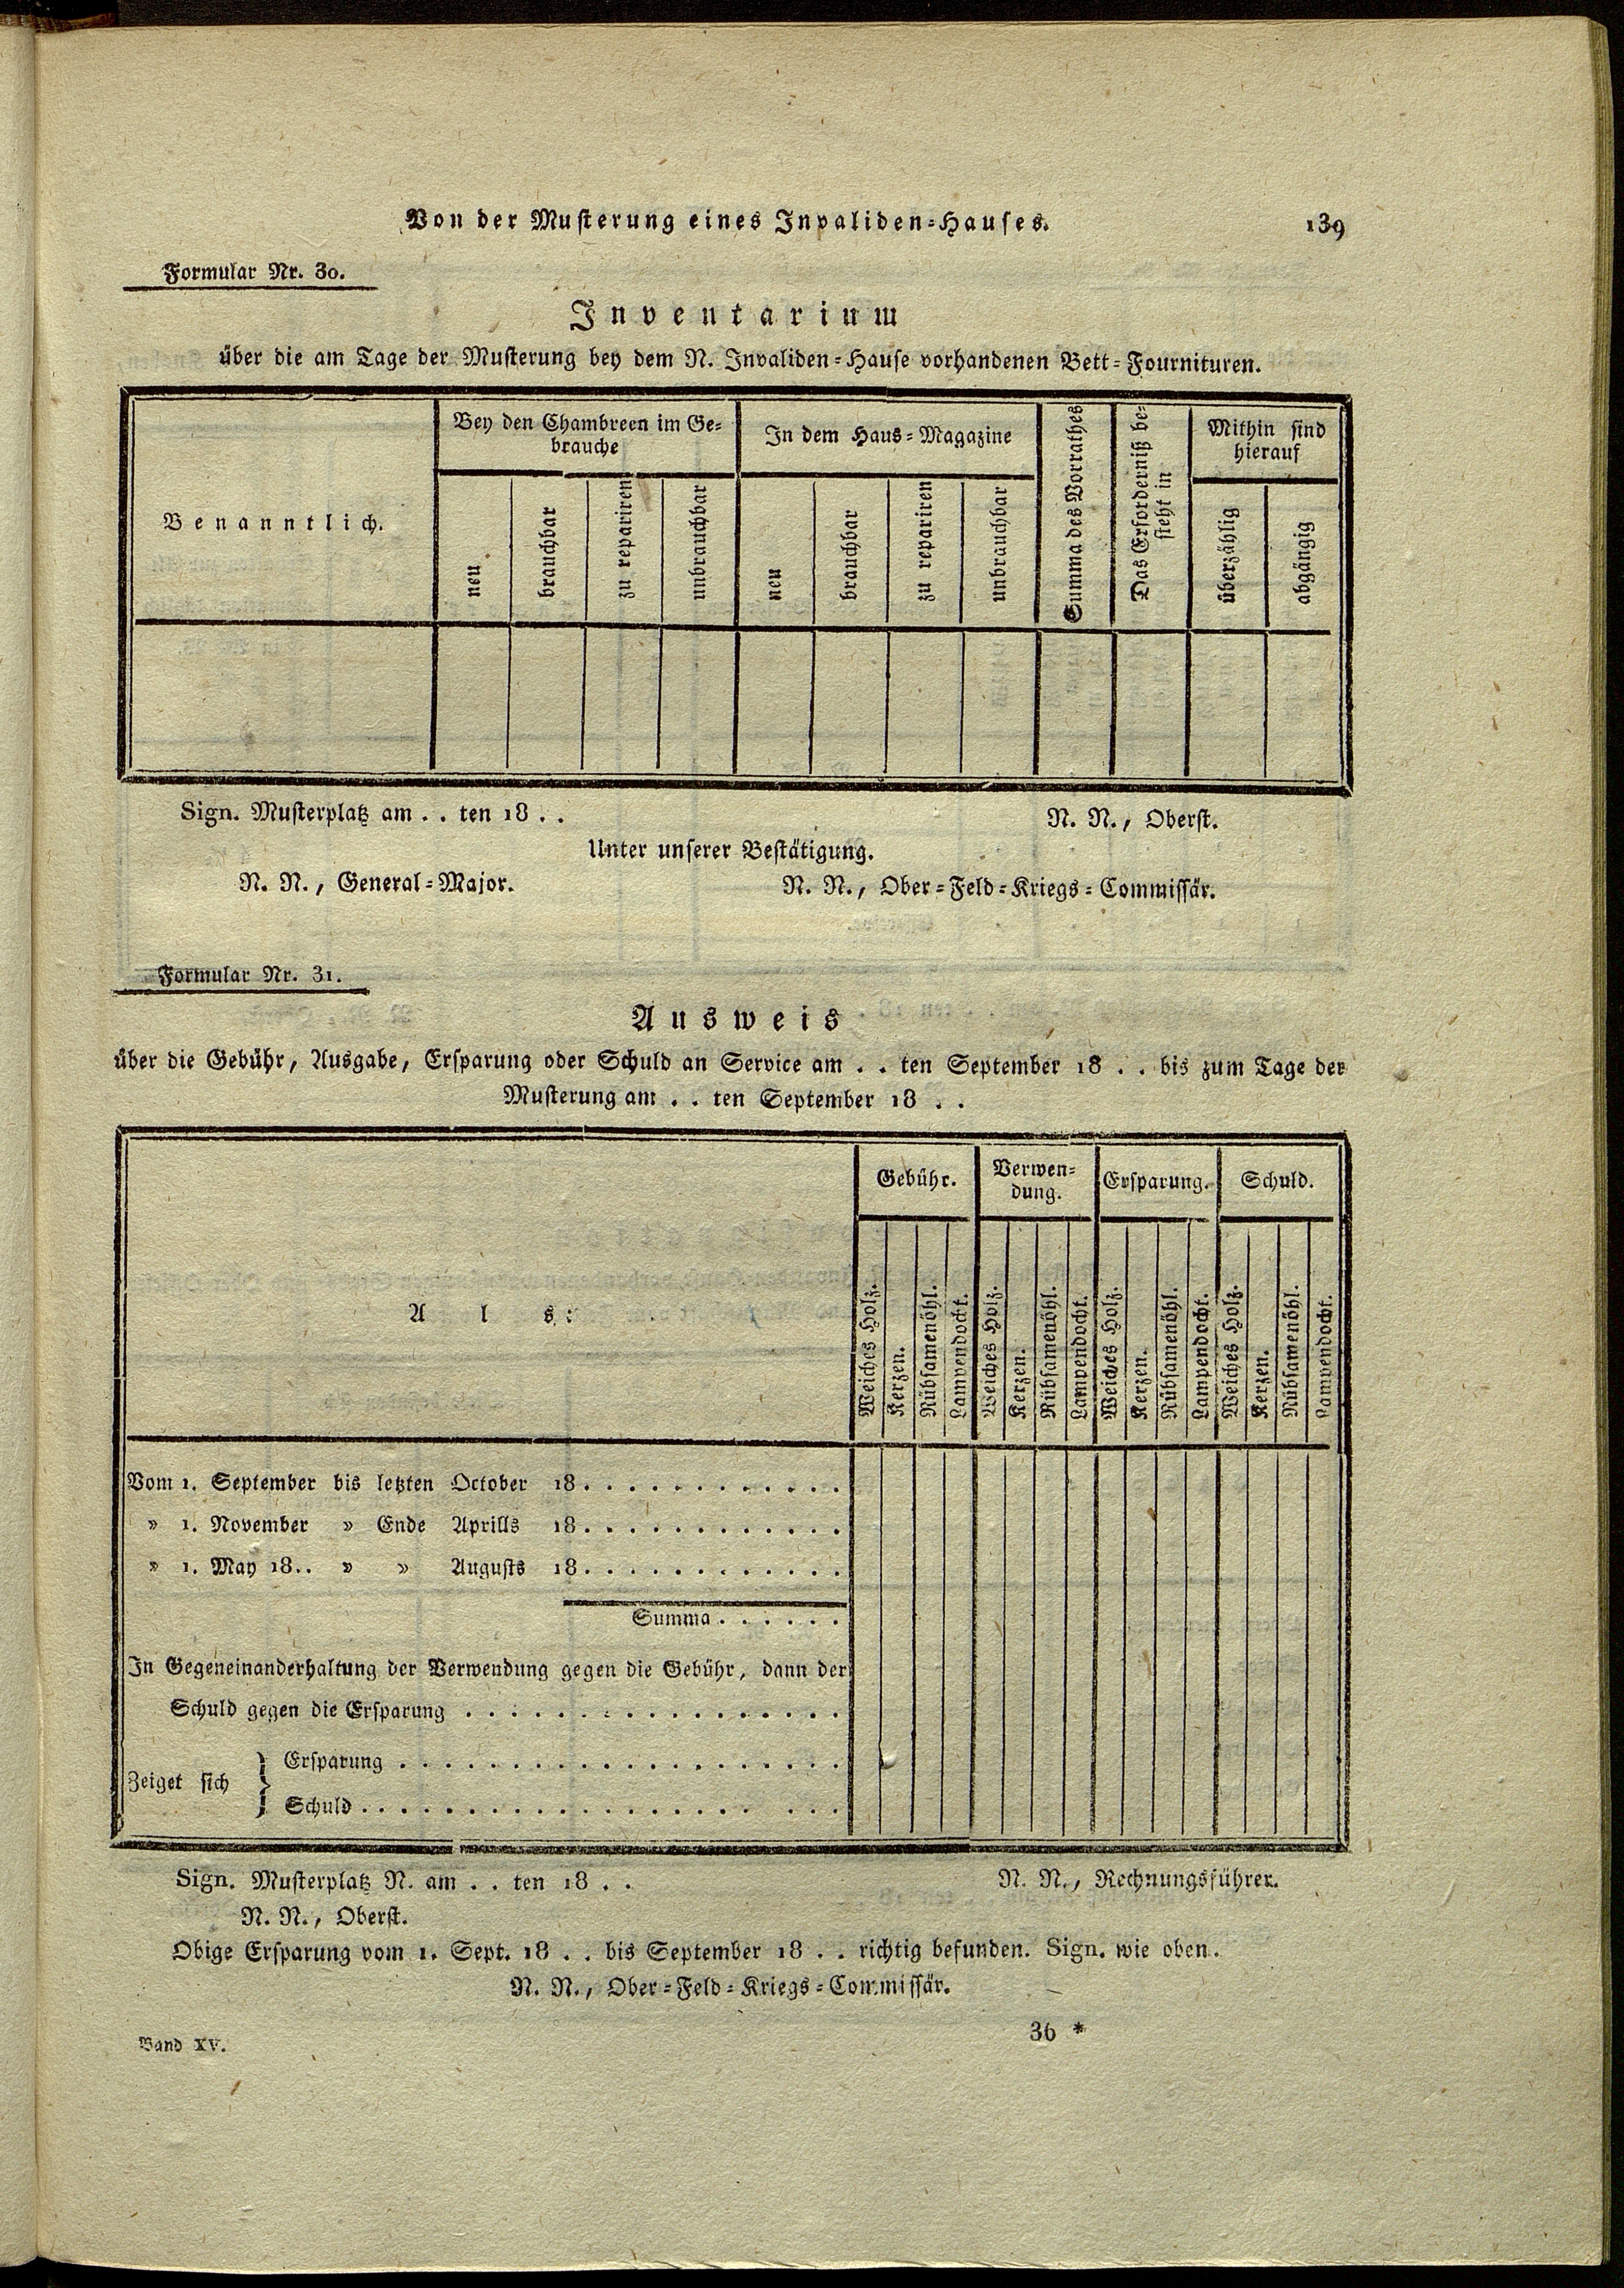 Von der Musterung eines Invaliden=Hauses. 139
Formular Nr. 30.
Inventarium
über die am Tage der Musterung bey dem N. Invaliden=Hause vorhandenen Bett=Fournituren.
Benanntlich.
Bey den Chambreen im Ge=
brauche
In dem Haus=Magazine
Summa des Vorrathes
Das Erforderniß be=
steht in
Mithin sind
hierauf
neu
brauchbar
zu repariren
unbrauchbar
neu
brauchbar
zu repariren
unbrauchbar
überzählig
abgängig
Sign. Musterplatz am . . ten 18 . . N. N., Oberst.
Unter unserer Bestätigung.
N. N., General=Major. N. N., Ober=Feld=Kriegs=Commissär.
Formular Nr. 31.
Ausweis
über die Gebühr, Ausgabe, Ersparung oder Schuld an Service am . . ten September 18 . . bis zum Tage der
Musterung am . . ten September 18 . .
Als:
Gebühr.
Verwen=
dung.
Ersparung.
Schuld.
Weiches Holz.
Kerzen.
Rübsamenöhl.
Lampendocht.
Weiches Holz.
Kerzen.
Rübsamenöhl.
Lampendocht.
Weiches Holz.
Kerzen.
Rübsamenöhl.
Lampendocht.
Weiches Holz.
Kerzen.
Rübsamenöhl.
Lampendocht.
Vom 1. September bis letzten October 18. . . . . . . . . . . .
» 1. November » Ende Aprills 18. . . . . . . . . . . .
» 1. May 18.. » » Augusts 18. . . . . . . . . . . .
Summa . . . . . .
In Gegeneinanderhaltung der Verwendung gegen die Gebühr, dann der
Schuld gegen die Ersparung . . . . . . . . . . . . . . . . .
Zeiget sich } Ersparung . . . . . . . . . . . . . . . . . . . .
Schuld . . . . . . . . . . . . . . . . . . . . .
Sign. Musterplatz N. am . . ten 18 . . N. N., Rechnungsführer.
N. N., Oberst.
Obige Ersparung vom 1. Sept. 18 . . bis September 18 . . richtig befunden. Sign. wie oben.
N. N., Ober=Feld=Kriegs=Commissär.
Band XV. 36 *